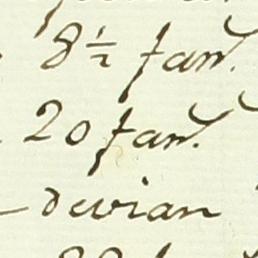 8½ fam.
20 fam.
devian